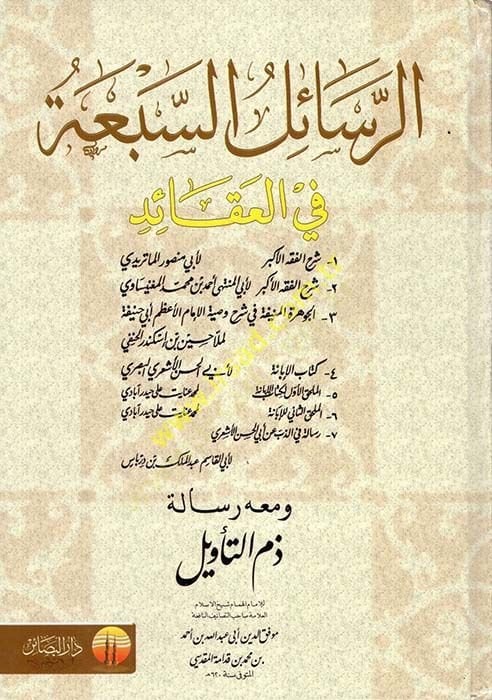 الرَّسَائِلُ السَّبْعَةُ
فِي الْعَقَائِدِ
١- شرح الفقه الأكبر لأبي منصور الماتريدي
٢- شرح الفقه الأكبر لأبي المنتهى أحمد بن محمد المغنيساوي
٣- الجوهرة المنيفة في شرح وصية الإمام الأعظم أبي حنيفة
لملا حسين بن اسكندر الحنفي
٤- كتاب الإبانة لأبي الحسن الأشعري البصري
٥- الملحق الأول لكتاب الإبانة لمحمد عنايت علي حيدر آبادي
٦- الملحق الثاني للإبانة لمحمد عنايت علي حيدر آبادي
٧- رسالة في الذب عن أبي الحسن الأشعري
لأبي القاسم عبد الملك بن درباس
ومعه رسالة
ذم التأويل
للإمام الهمام شيخ الإسلام
العلامة صاحب التصانيف النافعة
موفق الدين أبي عبد الله بن أحمد
بن محمد بن قدامة المقدسي
المتوفى سنة ٦٢٠هـ
دار البصائر